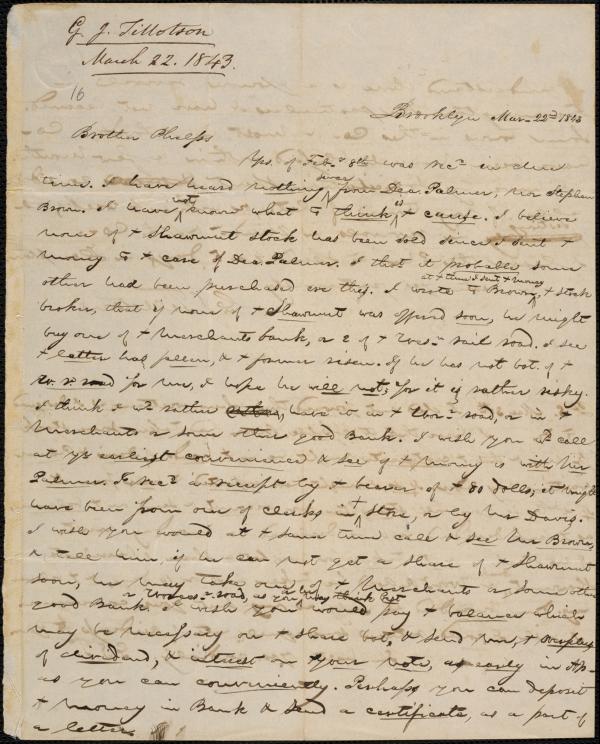 G. J. Tillotson
March 22. 1843.
16
Brooklyn Mar. 22d 1843
Brother Phelps
Yrs. of Feb. 8th was recd in due
time. I have heard nothing since from Dea. Palmer, nor Stephen
Brown. I have not known what to think is + cause. I believe
none of + Shawmut stock has been sold since I sent +
money to + care of Dea. Palmer. I tho't it probable some
other had been purchased ere this. I wrote to Brown, at + time I sent + money + stock
broker, that if none of + Shawmut was offered soon, he might
buy one of + Merchants bank, or 2 of + Wes. rail road. I see
+ latter has fallen, & + former risen. If he has not bot. of +
W. r. road for me, I hope he will not, for it is rather risky.
I think I wd rather have it in + Wor. road, or in +
Merchants or some other good Bank. I wish you wd call
at yr earliest convenience & see if + money is with Mr
Palmer. I recd a receipt by + bearer of + 80 dolls, it might
have been from one of clerks in + Store, or by Mr Davis.
I wish you would at + same time call & see Mr Brown,
& tell him, if he can not get a share of + Shawmut
soon, he may take one of + Merchants or some other
good Bank or Worces. road, as you may think best. I wish you would pay + balance which
may be necessary on + share bot, & send me, + overplus
of dividend, & interest on your note, as early in Ap.
as you can conveniently. Perhaps you can deposit
+ money in Bank & send a certificate, as a part of
a letter.